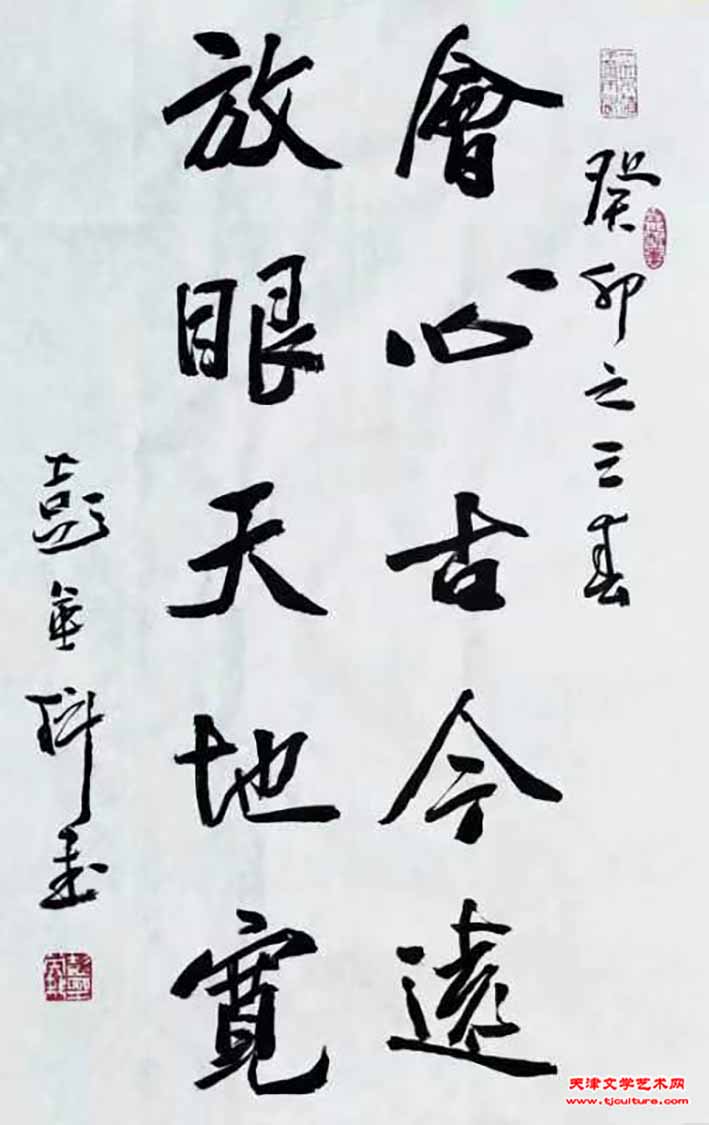 癸卯之三春
會心古今遠
放眼天地寬
彭
天津文学艺术网
www.tjculture.com